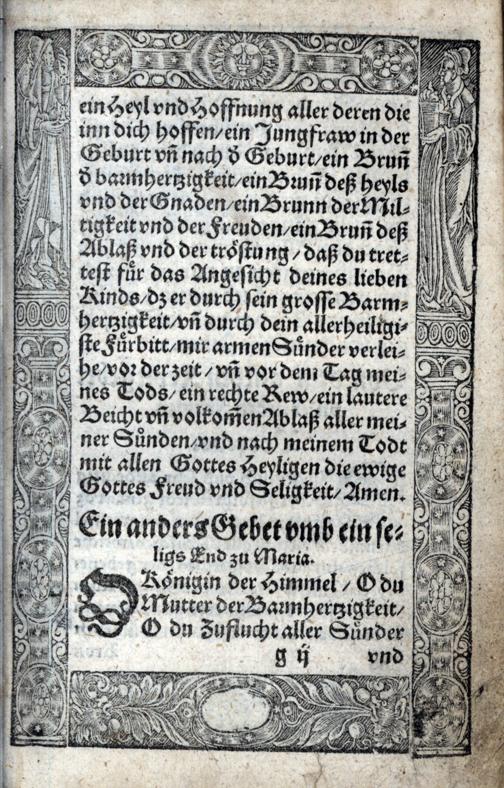 ein Heyl vnd Hoffnung aller deren die
inn dich hoffen/ein Jungfraw in der
Geburt vn̄ nach d̕ Geburt/ein Brun̄
d̕ barmhertzigkeit/ein Brun̄ deß heyls
vnd der Gnaden/ein Brunn der Mil⸗
tigkeit vnd der Freuden/ein Brun̄ deß
Ablaß vnd der tröstung / daß du tret⸗
test für das Angesicht deines lieben
Kinds/dz er durch sein grosse Barm⸗
hertzigkeit/vn̄ durch dein allerheiligi⸗
ste Fürbitt/mir armen Sünder verlei⸗
he/vor der zeit / vn̄ vor dem Tag mei⸗
nes Tods/ein rechte Rew/ein lautere
Beicht vn̄ volkom̄en Ablaß aller mei⸗
ner Sünden/vnd nach meinem Todt
mit allen Gottes Heyligen die ewige
Gottes Freud vnd Seligkeit/Amen.
Ein anders Gebet vmb ein se⸗
ligs End zu Maria.
O Königin der Himmel / O du
Mutter der Barmhertzigkeit/
O du Zuflucht aller Sünder
g ij vnd